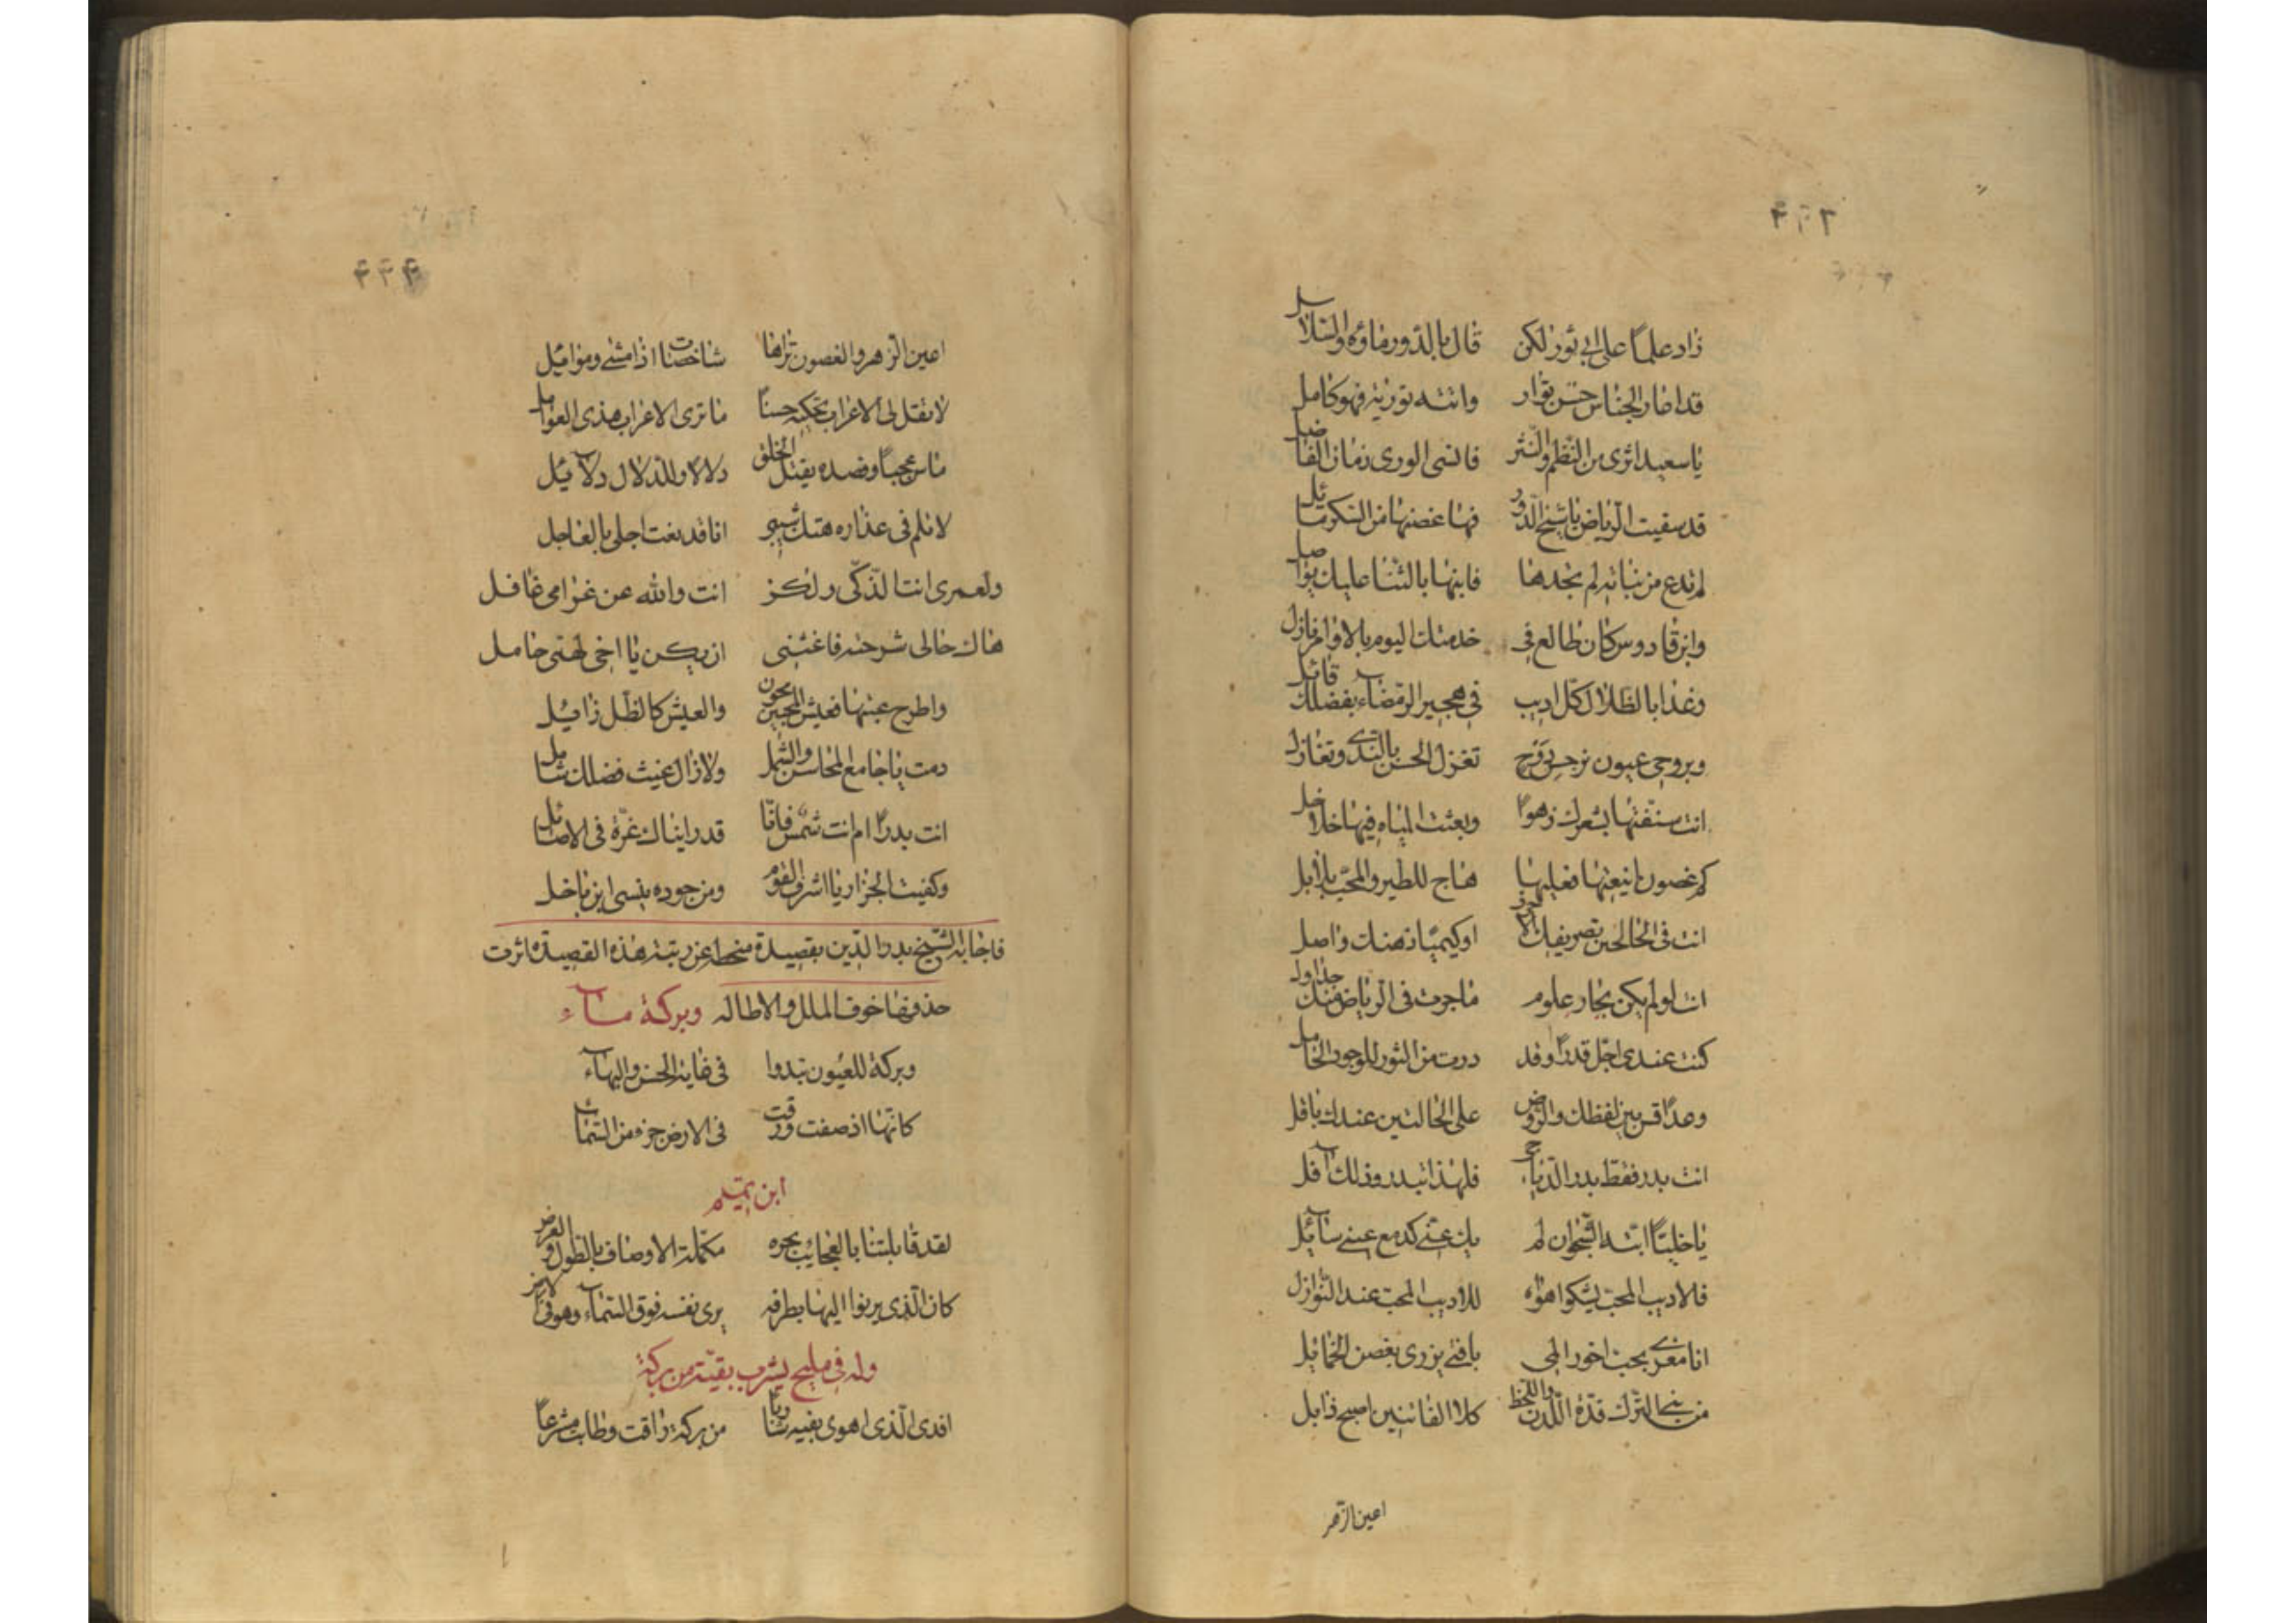 ٤٤٣
زاد علمًا على ابي ثور لكن قال بالدور ماؤه والسلاسل
قد اضار الجناس حسن بقوار وانته تورية فهو كامل
يا سعيدا اثرى من النظم والنثر فانسى الورى زمان الفاضل
قد سقيت الرياض يا شيخ الدور فها غصنها من السكر مائل
لم تدع من نباته لم تجدها فابنها بالثنا عليك يواصل
وابن قادوس كان طالع في خدمتك اليوم بالاوامر نازل
وغدا بالظلال كل اديب في هجير الرمضاء بفضلك قائل
وبروحي عيون نرجس دوح تغزل الحسن بالندى وتغازل
انت سقفتها بشعرك زهوا وبعثت المياه فيها خلاخل
كم غصون اينعتها فعليها هاج للطير والمحب بلابل
انت في الحالحين تصريفك الدور او كيميا ذهنك واصل
انت لو لم يكن بحار علوم ما جرت في الرياض منك جداول
كنت عندي اجل قدرا وقد درت من الثور للوجود الحامل
وغدا قس بين لفظك والروض على الحالتين عندك باقل
انت بدر فقط بدر الدياجي فلهذا تبدر وذلك آفل
يا خليلًا ابثه الشجوان لم يك عني كدمع عيني سائل
فلاديب المحب يشكوا هواه للاديب المحب عند النوازل
انا مغرى بحب احور المى يا فتى يزرى بغصن الخمائل
من بني الترك قده اللدن واللحظ كلا الفاتنين اصبح ذابل
اعين الزهر
٤٤٤
اعين الزهر والغصون تراها شاخصات اذا مشى وموائل
لا تقل لي الاغراب تحكيه حسنًا ما ترى الاغراب هذى العوامل
ماس عجبًا وقصده يقتل الخلق دلالا وللدلال دلائل
لا تلم في عذاره هتك سترى انا قد بعت اجلي بالعاجل
ولعمرى انت الذكى ولكن انت والله عن غرامى غافل
هاك حالى شرحته فاغثنى ان يكن يا اخى لهتى حامل
واطرح عبئها فعيش المحبين يحون والعيش كالظل زائل
دمت يا جامع المحاسن والشمل ولا زال غيث فضلك شامل
انت بدرًا ام انت شمس فانا قد راينك غرة فى الاصائل
وكفيت الجزار يا اشرف القوم ومن جوده ينسى ابن باخل
فاجابه الشيخ بدر الدين بقصيدة منحطه عن رتبة هذه القصيدة اثرت
حذفها خوف الملل والاطاله وبركة ماء
وبركة للعيون تبدوا فى غاية الحسن والبهاء
كانها اذ صفت ورقت فى الارض جزء من السماء
ابن تميم
لقد قابلتنا بالعجايب بحره مكملة الاوصاف بالطول والعرض
كان الذى يرنوا اليها بطرفه يرى نفسه فوق السماء وهو فى الارض
وله فى مليح يشرب بقيه من بركة
افدى الذى اهوى بفيه شاربًا من بركة راقت وطابت مشرعًا